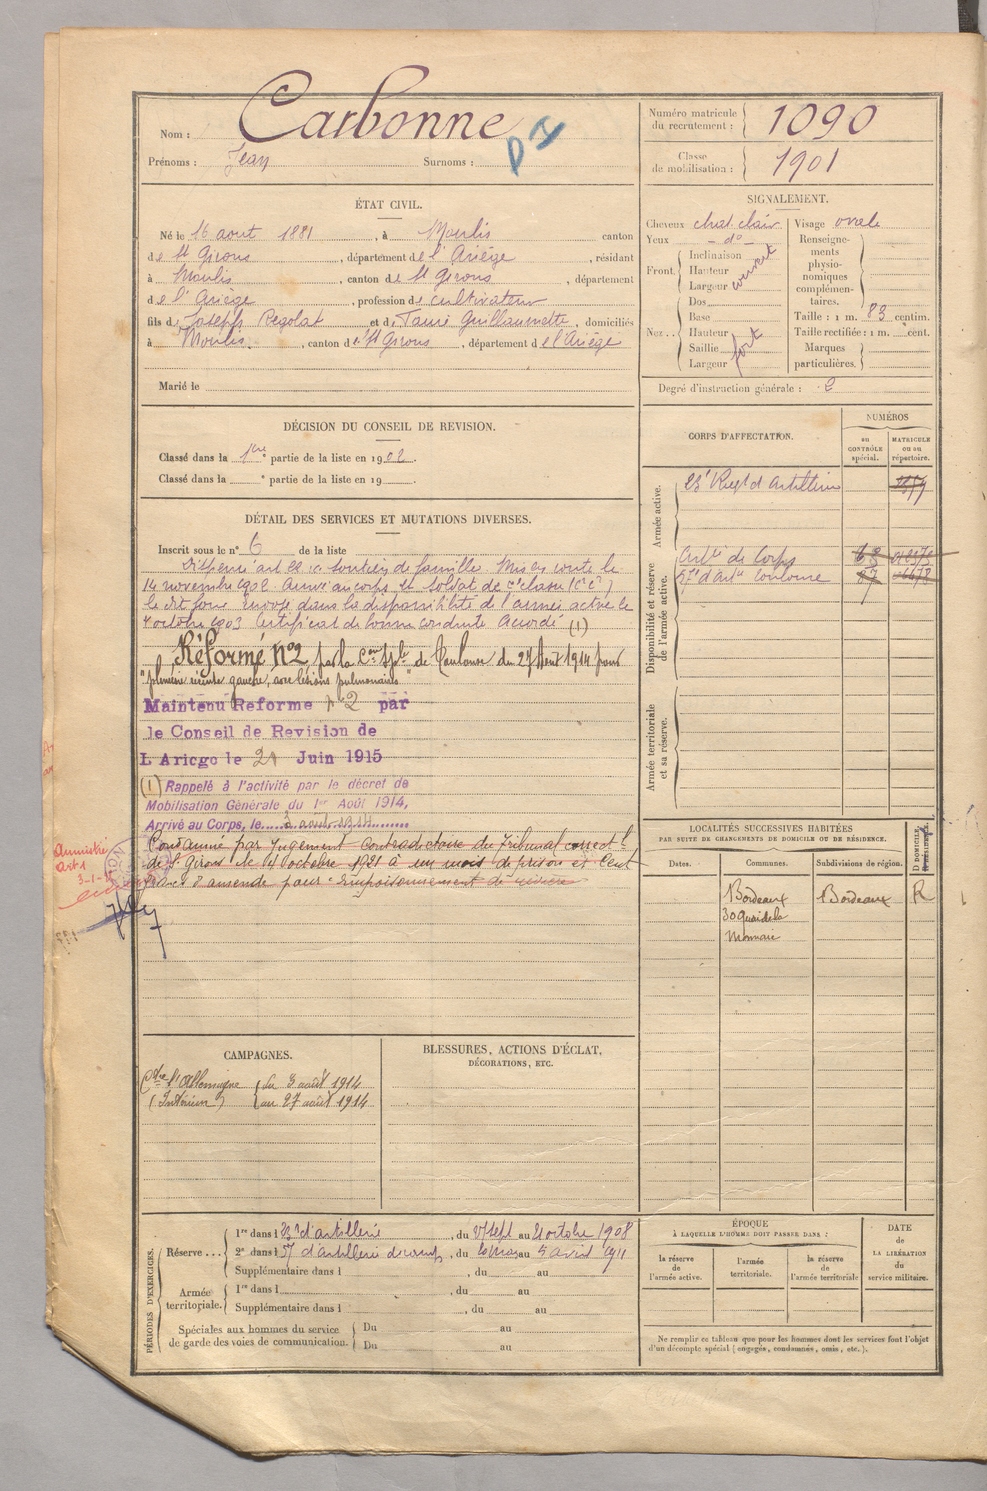 Nom : Carbonne
Prénoms : Jean Surnoms :
Numéro matricule du recrutement : 1090
Classe de mobilisation : 1901
ÉTAT CIVIL.
Né le 16 aout 1881, à Moulis canton
de St Girons, département de l'Ariège, résidant
à Moulis, canton de St Girons, département
de l'Ariège, profession de cultivateur
fils de Joseph Regolat et de Guillaumette, domiciliés
à Moulis, canton de St Girons, département de l'Ariège
Marié le
SIGNALEMENT.
Cheveux chat. clair
Yeux - do -
Front. Inclinaison
Hauteur
Largeur
couvert
Nez.. Dos
Base
Hauteur
Saillie
Largeur
fort
Visage ovale
Renseignements physionomiques complémentaires.
Taille : 1 m. 83 centim.
Taille rectifiée : 1 m. cent.
Marques particulières.
Degré d'instruction générale : 2
DÉCISION DU CONSEIL DE REVISION.
Classé dans la 1ère partie de la liste en 1902.
Classé dans la e partie de la liste en 19 .
CORPS D'AFFECTATION.
NUMÉROS
au CONTRÔLE spécial.
MATRICULE ou au répertoire.
Armée active.
23e Regt d'Artillerie
Disponibilité et réserve de l'armée active.
Artie de Corps
57e d'Artie Toulouse
Armée territoriale et sa réserve.
DÉTAIL DES SERVICES ET MUTATIONS DIVERSES.
Inscrit sous le n° 6 de la liste
Dispensé art 22 soutien de famille. Mis en route le
14 novembre 1902. Arrivé au corps et soldat de 2e classe
le dit jour. Envoyé dans la disponibilité de l'armée active le
octobre 1903 Certificat de bonne conduite Accordé (1)
Réformé N°2, par la Con Sple de Toulouse du 27 Aout 1914 pour
"pleurésie récente gauche, avec lésions pulmonaires"
Maintenu Reforme n° 2 par
le Conseil de Revision de
L Ariege le 21 Juin 1915
(1) Rappelé à l'activité par le décret de
Mobilisation Générale du 1er Août 1914,
Arrivé au Corps, le 3 août 1914
Condamné par Jugement Contradictoire du Tribunal correctl
de St Girons le 14 octobre 1921 à un mois de prison et cent
francs d'amende pour "Empoisonnement de rivière"
Amnistié
3-1-
LOCALITÉS SUCCESSIVES HABITÉES
PAR SUITE DE CHANGEMENTS DE DOMICILE OU DE RÉSIDENCE.
Dates. Communes. Subdivisions de région. D DOMICILE R RÉSIDENCE
Bordeaux Bordeaux R
30 Quai de la
Monnaie
CAMPAGNES.
Ctre l'Allemagne du 3 août 1914
(Intérieur) au 27 août 1914
BLESSURES, ACTIONS D'ÉCLAT,
DÉCORATIONS, ETC.
PÉRIODES D'EXERCICES.
Réserve... 1re dans l 23e d'artillerie, du 27 sept au 21 octobre 1908
2e dans l 57 d'Artillerie de camp, du mars au 5 avril 1911
Supplémentaire dans l , du au
Armée territoriale. 1re dans l , du au
Supplémentaire dans l , du au
Spéciales aux hommes du service de garde des voies de communication. Du au
Du au
ÉPOQUE
À LAQUELLE L'HOMME DOIT PASSER DANS :
la réserve de l'armée active.
l'armée territoriale.
la réserve de l'armée territoriale
DATE DE LA LIBÉRATION du service militaire.
Ne remplir ce tableau que pour les hommes dont les services font l'objet
d'un décompte spécial (engagés, condamnés, omis, etc.).